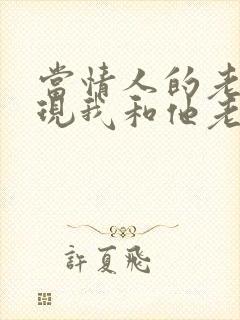 當情人的老
現我和他老
許夏飛